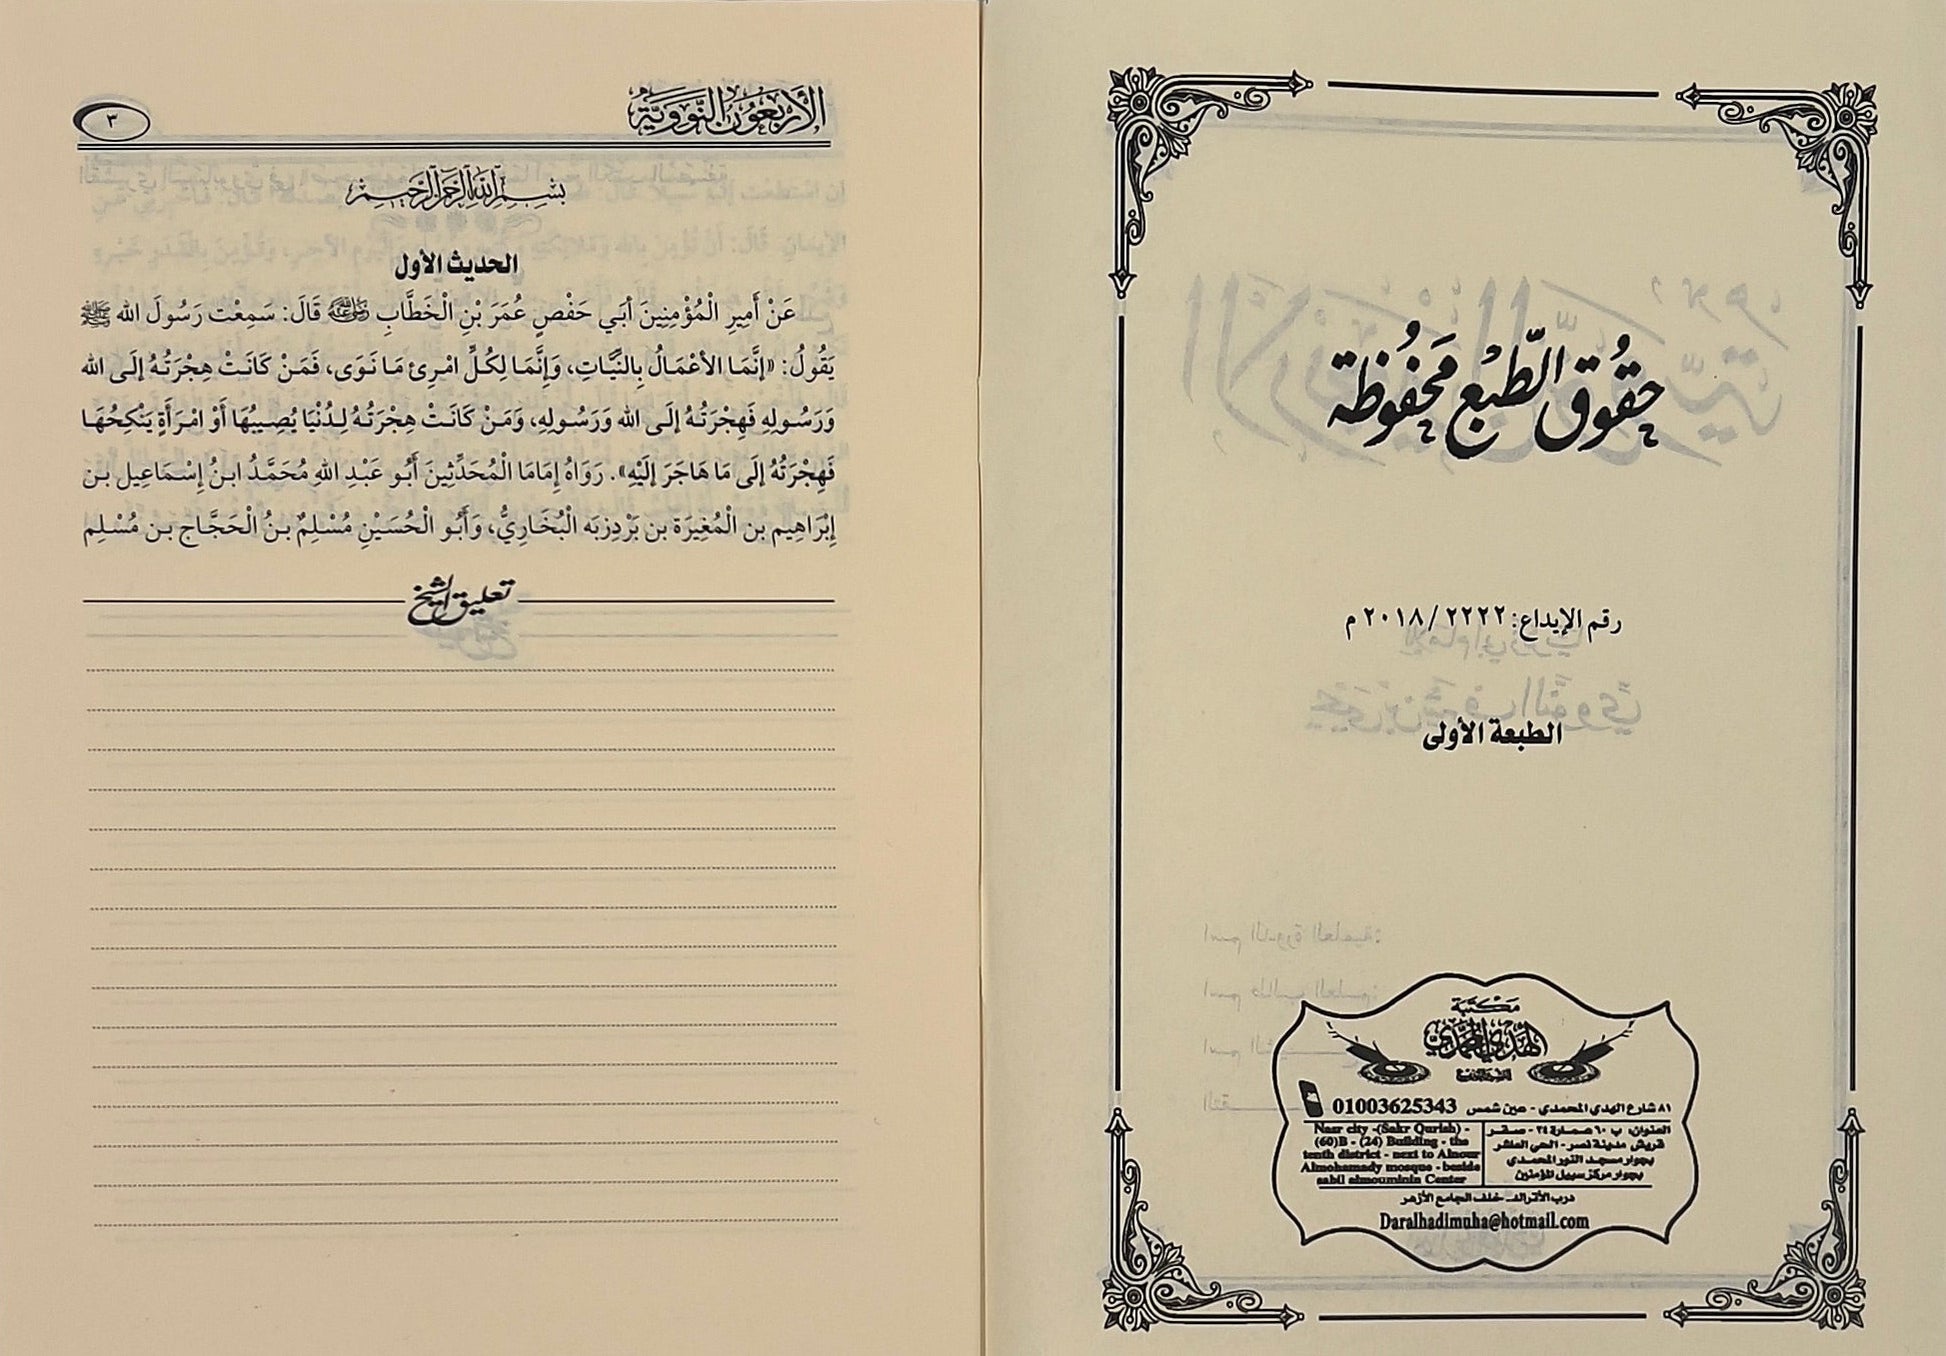 حقوق الطبع محفوظة
رقم الإيداع: ٢٢٢٢ / ٢٠١٨ م
الطبعة الأولى
مكتبة
الهدي المحمدي
للنشر والتوزيع
٨١ شارع الهدي المحمدي - عين شمس 01003625343
العنوان: ب ٦٠ عمارة ٢٤ - صقر
قريش مدينة نصر - الحي العاشر
بجوار مسجد النور المحمدي
بجوار مركز سبيل المؤمنين
Nasr city -(Sakr Qurish) -
(60)B - (24) Building - the
tenth district - next to Alnour
Almohamady mosque - beside
sabil almouminin Center
درب الأتراك - خلف الجامع الأزهر
Daralhadimuha@hotmail.com
الأَرْبَعُونَ النَّوَوِيَّة
٣
بِسْمِ اللَّهِ الرَّحْمَنِ الرَّحِيمِ
الحديث الأول
عَنْ أَمِيرِ الْمُؤْمِنِينَ أَبَي حَفْصٍ عُمَرَ بْنِ الْخَطَّابِ رضي الله عنه قَالَ: سَمِعْت رَسُولَ الله ﷺ
يَقُولُ: «إنَّمَا الأعْمَالُ بِالنيَّاتِ، وَإِنَّمَا لِكُلِّ امْرِئ مَا نَوَى، فَمَنْ كَانَتْ هِجْرَتُهُ إلَى الله
وَرَسُولِهِ فَهِجْرَتُهُ إلَى الله وَرَسُولِهِ، وَمَنْ كَانَتْ هِجْرَتُهُ لِدُنْيَا يُصِيبُهَا أَوْ امْرَأَةٍ يَنْكِحُهَا
فَهِجْرَتُهُ إلَى مَا هَاجَرَ إلَيْهِ». رَوَاهُ إمَامَا الْمُحَدِّثِينَ أَبُو عَبْدِ اللهِ مُحَمَّدُ ابنُ إِسْمَاعِيل بن
إِبْرَاهِيم بن الْمُغِيرَة بن بَرْدِزبَه الْبُخَارِيُّ، وَأَبُو الْحُسَيْنِ مُسْلِمٌ بنُ الْحَجَّاج بن مُسْلِم
تعليق الشيخ